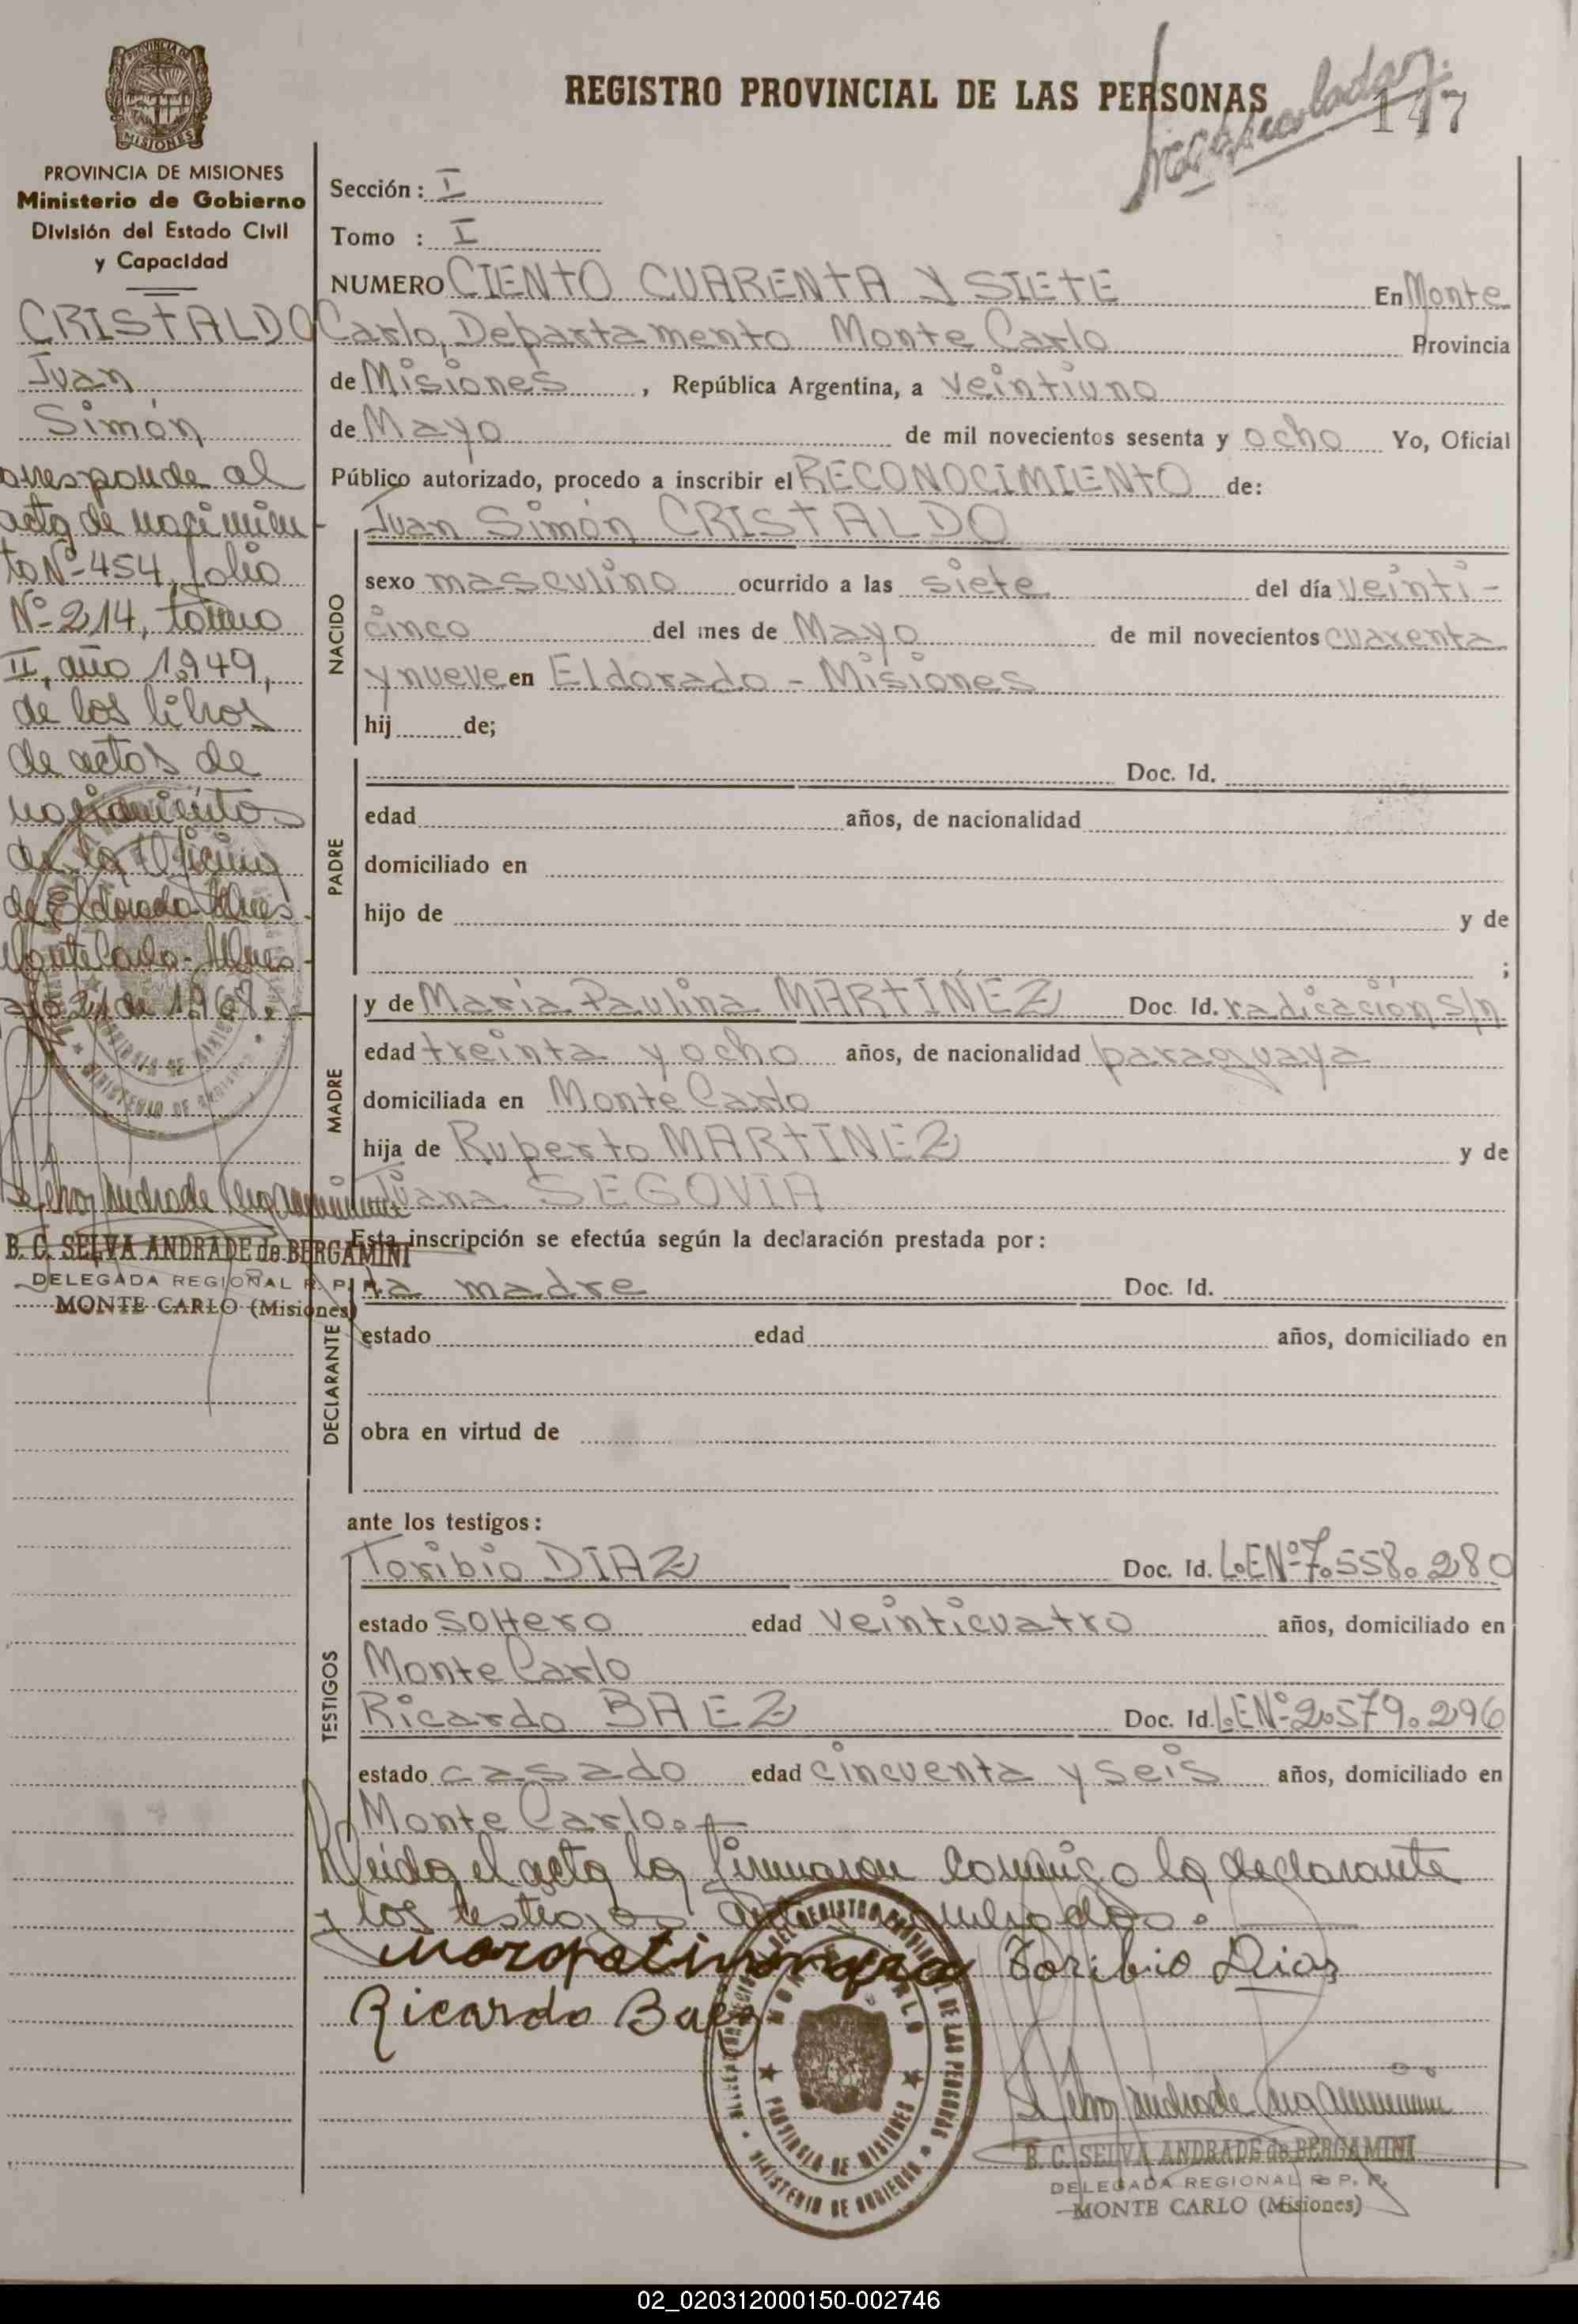 REGISTRO PROVINCIAL DE LAS PERSONAS
147
MISIONES
PROVINCIA DE MISIONES
Ministerio de Gobierno
División del Estado Civil
y Capacidad
CRISTALDO
Juan
Simón
orresponde al
acta de nacimien-
to Nº 454, folio
Nº 214, tomo
II, año 1.949,
de los libros
de actos de
nacimientos
de la Oficina
de Eldorado Mnes.
Monte Carlo - Mnes -
21 de 1968.
B. C. SELVA ANDRADE de BERGAMINI
DELEGADA REGIONAL R. P. P.
MONTE CARLO (Misiones)
Sección: I
Tomo : I
NUMERO CIENTO CUARENTA Y SIETE En Monte
Carlo, Departamento Monte Carlo Provincia
de Misiones, República Argentina, a veintiuno
de Mayo de mil novecientos sesenta y ocho Yo, Oficial
Público autorizado, procedo a inscribir el RECONOCIMIENTO de:
NACIDO
Juan Simón CRISTALDO
sexo masculino ocurrido a las siete del día veinti-
cinco del mes de Mayo de mil novecientos cuarenta
y nueve en Eldorado - Misiones
hij de;
PADRE
Doc. Id.
edad años, de nacionalidad
domiciliado en
hijo de y de
;
MADRE
y de María Paulina MARTÍNEZ Doc. Id. radicación s/n
edad treinta y ocho años, de nacionalidad paraguaya
domiciliada en Monte Carlo
hija de Ruperto MARTINEZ y de
Juana SEGOVIA
Esta inscripción se efectúa según la declaración prestada por:
DECLARANTE
la madre Doc. Id.
estado edad años, domiciliado en
obra en virtud de
ante los testigos:
TESTIGOS
Toribio DIAZ Doc. Id. L.E.Nº 7.558.280
estado soltero edad veinticuatro años, domiciliado en
Monte Carlo
Ricardo BAEZ Doc. Id. L.E.Nº 2.579.296
estado casado edad cincuenta y seis años, domiciliado en
Monte Carlo.-
Leída el acta la firmaron conmigo la declarante
y los testigos
Toribio Dias
Ricardo Baez
MONTE CARLO
PROVINCIA DE MISIONES
MINISTERIO DE GOBIERNO
B. C. SELVA ANDRADE de BERGAMINI
DELEGADA REGIONAL R. P. P.
MONTE CARLO (Misiones)
02_020312000150-002746